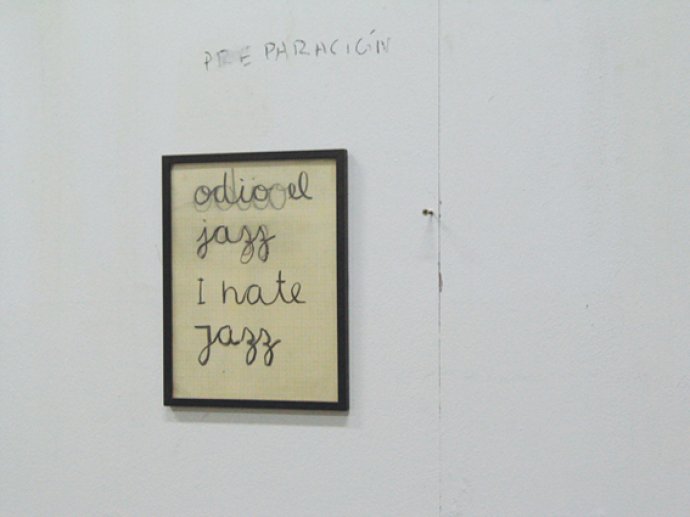 PREPARACIÓN
odio el
jazz
I hate
Jazz